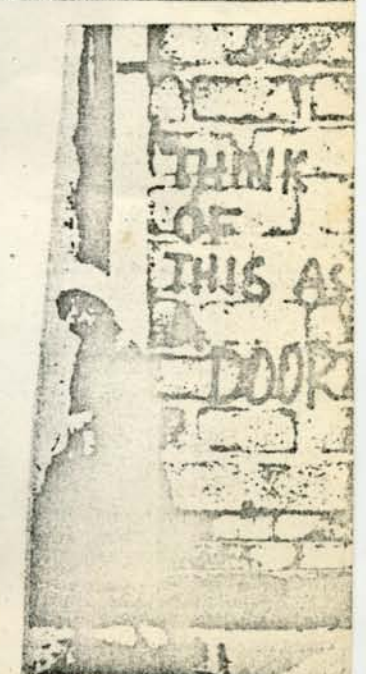 THINK
OF
THIS AS
DOOR